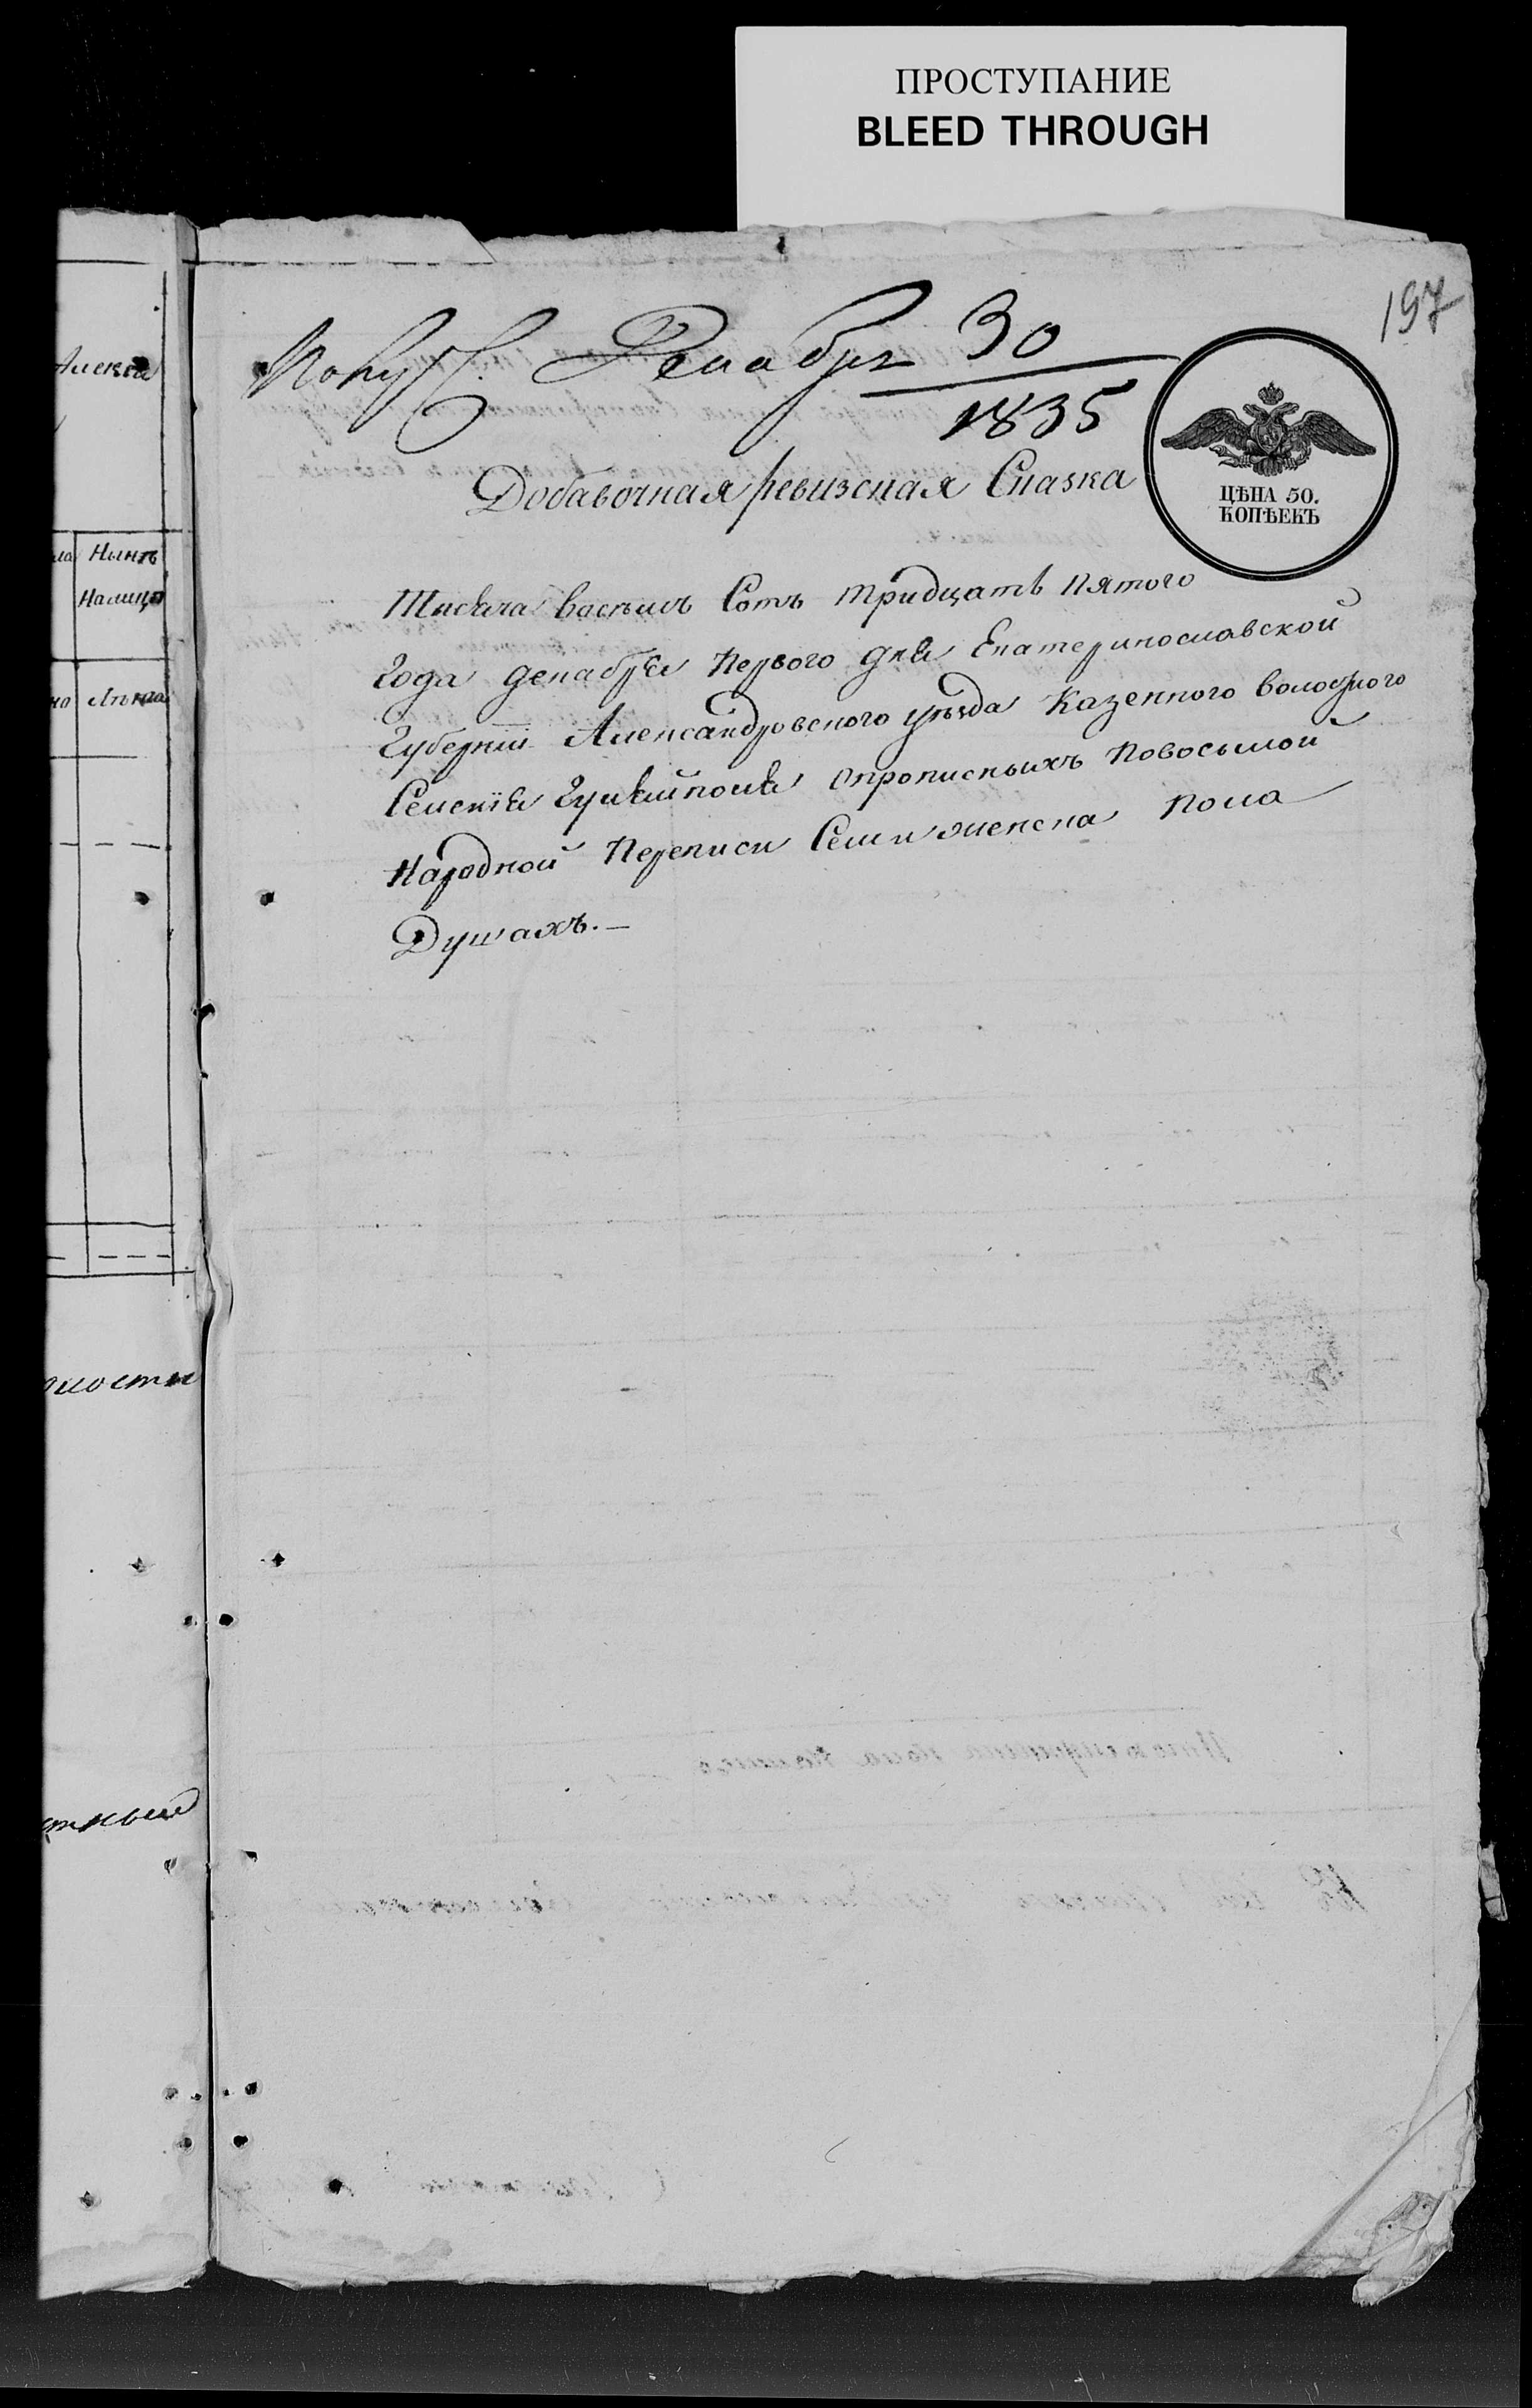 ПРОСТУПАНИЕ
BLEED THROUGH
197
Декабря 30
1835
ЦѢНА 50.
КОПѢЕКЪ
Добавочная ревизская Сказка
Тысяча восемь Сотъ тридцать пятого
Года декабря первого дня Екатеринославской
Губерніи Александровского уѣзда Казенного волостного
Селенія Гуляйполя опрописныхъ повосьмой
Народной Переписи Семи женска пола
Душахъ.—
Алексѣ
ла Нынѣ
Налицо
но Лѣта
ности
тный